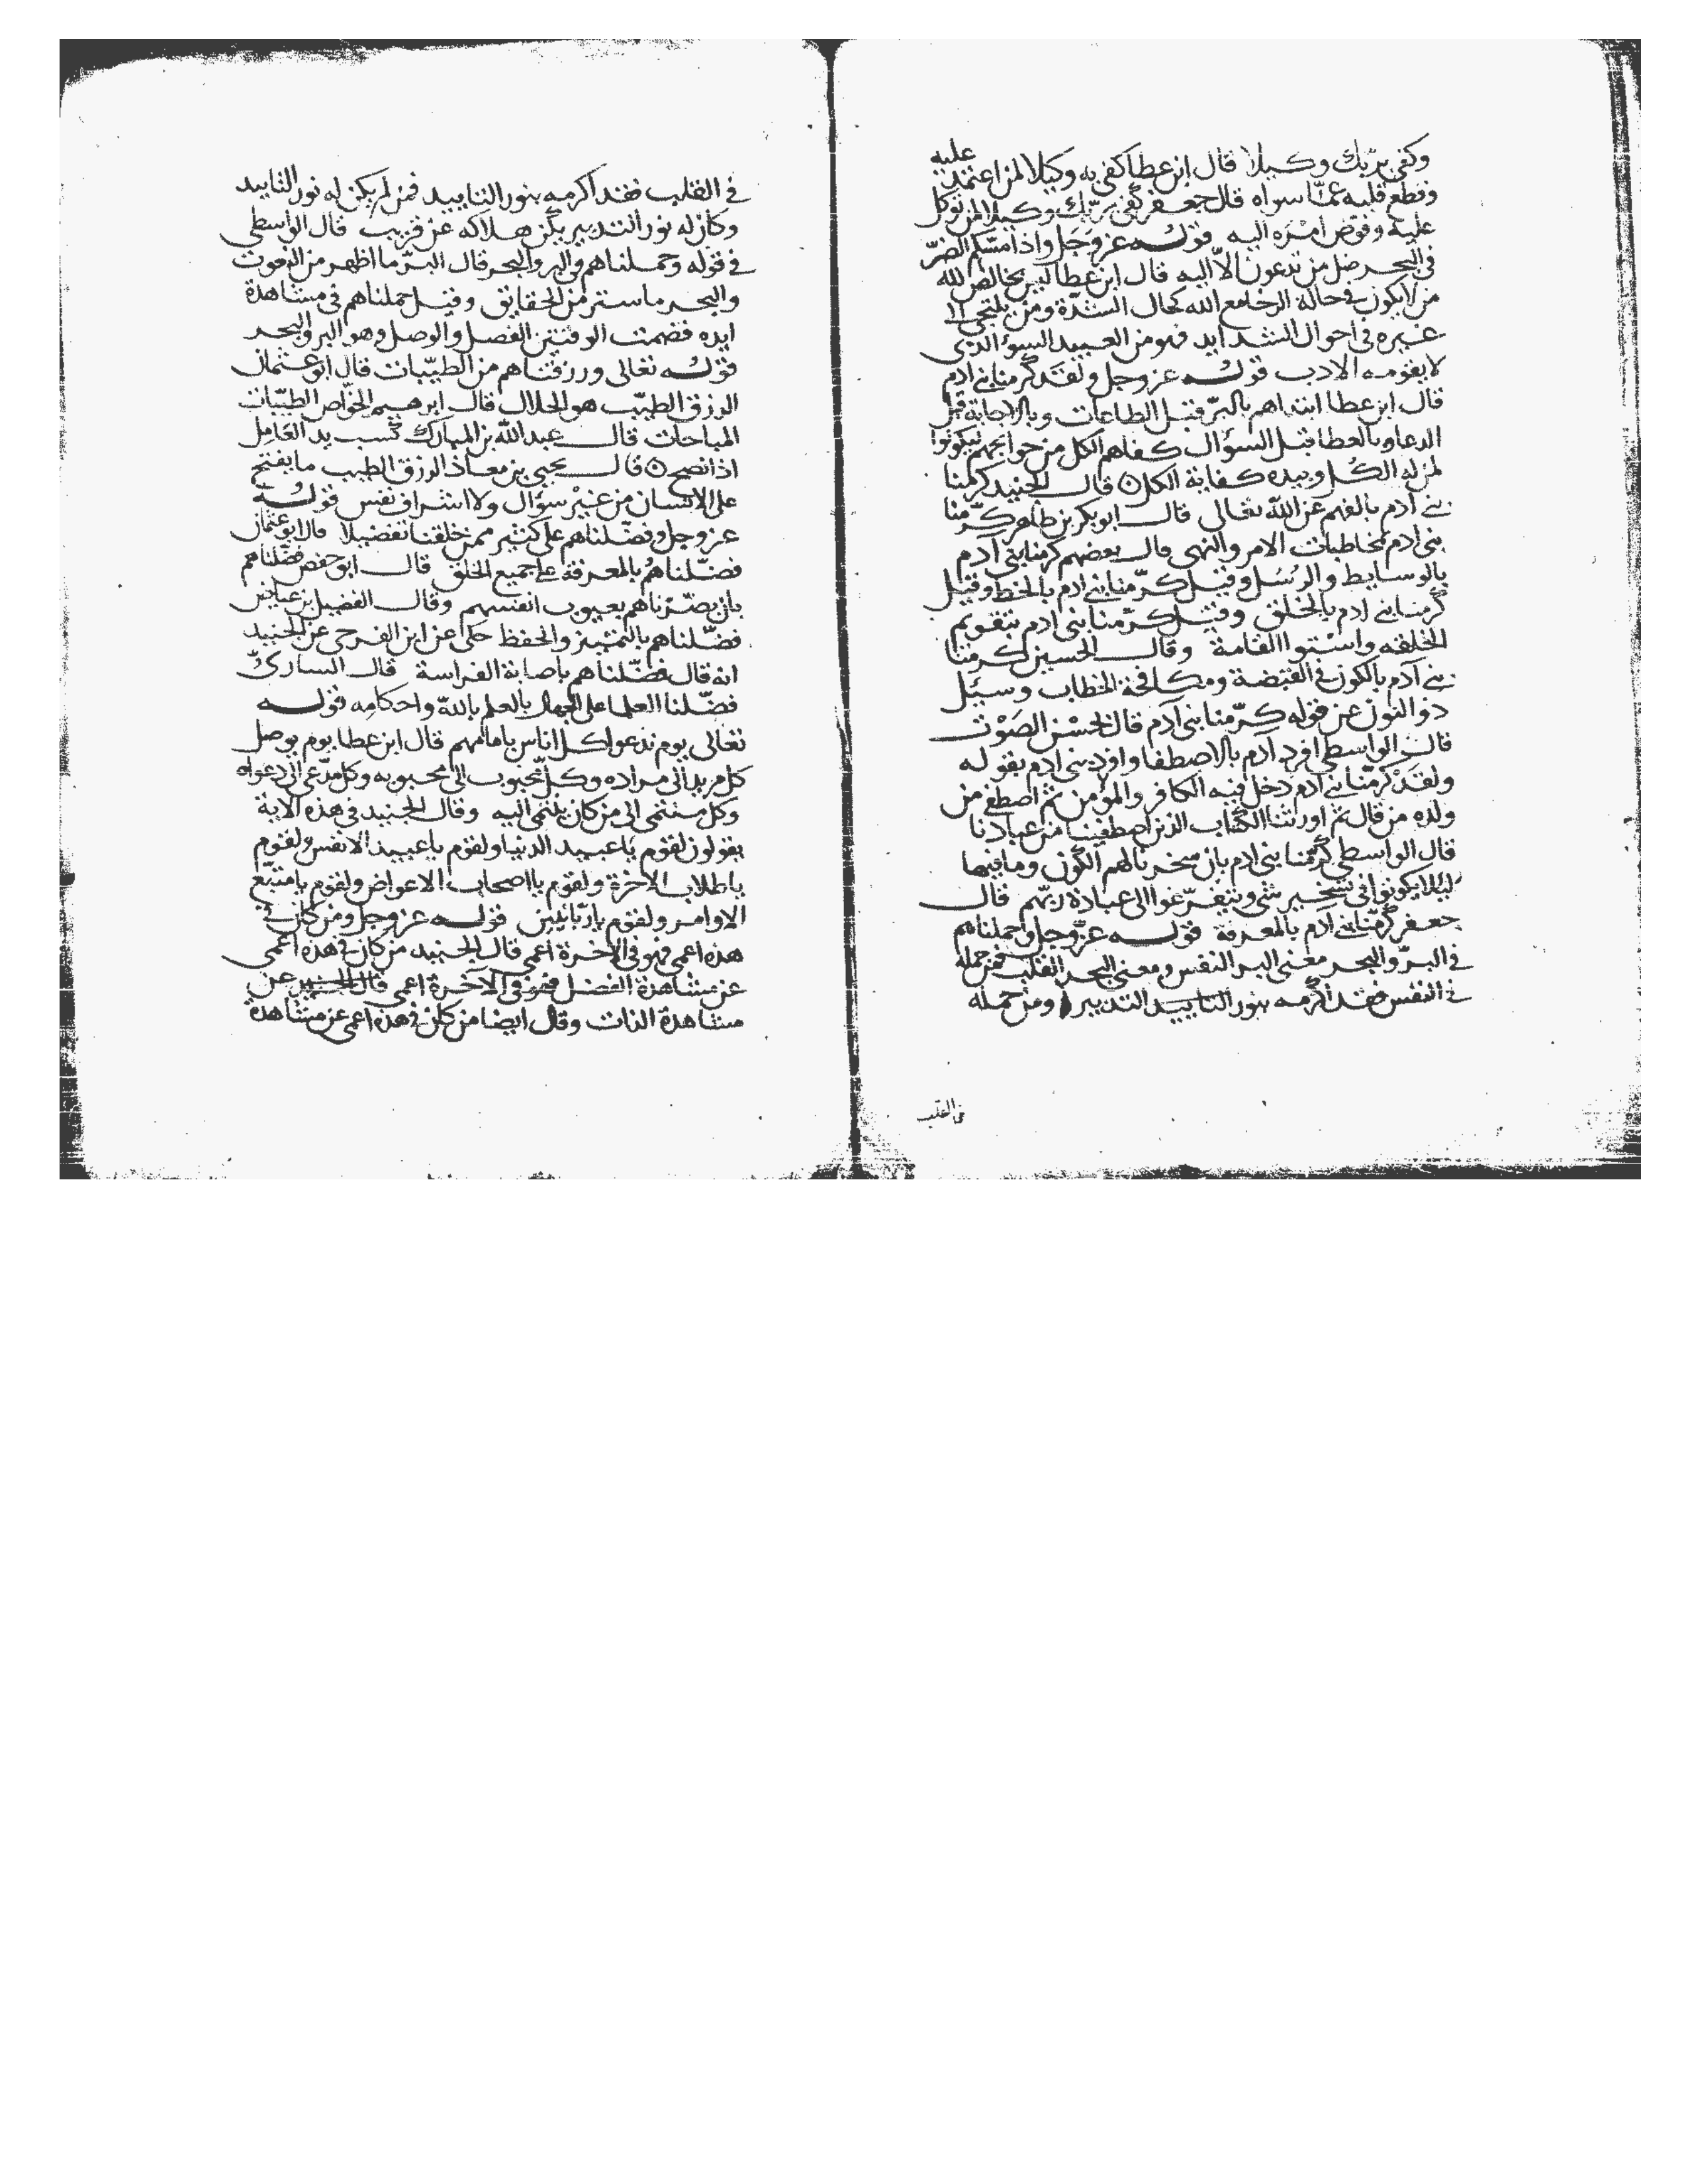 وكفى بربك وكيلا قال ابن عطا كفى به وكيلا لمن اعتمد عليه
وقطع قلبه عمّا سواه قال جعفر كفى بربّك وكيلا لمن توكل
عليه وفوّض امره اليه قوله عزوَجَل واذا مسّكم الضرّ
فى البحر ضل من تدعون الاّ اليه قال ابن عطا ليس بخالص لله
من لا يكون فى حالة الرخا مع الله كحال الشدّة ومن يلتجى الى
غيره فى احوال الشدايد فهو من العبيد السوء الذى
لا يقومه الادب قوله عزوجل ولقَد كرّمنا بنى ادم
قال ابن عطا ابتداهم بالبرّ قبل الطاعات وبالاجابة قبل
الدعا وبالعطا قبل السؤال كفاهم الكل من حوايجهم ليكونوا
لمن له الكُل وبيده كفاية الكل ۞ قال الجنيد كرمنا
بنى آدم بالفهم عن الله تعالى قال ابو بكر بن طاهر كرّمنا
بنى ادم بمخاطبات الامر والنهى قال بعضهم كرمنا بنى آدم
بالوسايط والرسُل وقيل كرّمنا بنى ادم بالخط وقيل
كرمنا بنى ادم بالخلق وقيل كرّمنا بنى ادم بتقويم
الخلقه واستوا القامة وقال الحسين كرمنا
بنى آدم بالكون فى القبضة ومكافحة الخطاب وسيَل
ذو النون عن قوله كرّمنا بنى آدم قال بحُسْن الصَوْت
قال الواسطى افرد ادم بالاصطفا وافرد بنى ادم بقوله
ولقَدْ كرّمنا بنى ادم دخل فيه الكافر والمؤمن ثم اصطفى من
ولده من قال ثم اورثنا الكتاب الذين اصطفينا من عبادنا
قال الواسطى كرّمنا بنى ادم بان سخرنا لهم الكون وما فيها
ليلا يكونوا فى تسخير شى ويتفرّغوا الى عبادة ربّهم قال
جعفر كرّمنا بنى ادم بالمعرفة قوله عزّوجل وحملناهم
فى البرّ والبحر معنى البر النفس ومعنى البحر القلب فمن حمله
فى النفس فقد اكرمه بنور التاييد التدبير ومن حمله
فى القلب
فى القلب فقد اكرمه بنور التاييد فمن لم يكن له نور التاييد
وكان له نور التدبير يكن هلاكه عن قريب قال الواسطى
فى قوله وحملناهم فى البر والبحر قال البرّ ما اظهر من النعوت
والبحر ما ستر من الحقايق وقيل حملناهم فى مشاهدة
ايده فضمت الوقتين الفصل والوصل وهو البر والبحر
قوله تعالى ورزقناهم من الطيّبات قال ابو عثمان
الرزق الطيّب هو الحلال قال ابرهيم الخوّاص الطيّبات
المباحات قال عبد الله بن المبارك كسب يد العَامِل
اذا نصح ۞ قال يحيى بن معاذ الرزق الطيب ما يفتح
على الانسان من غيْر سؤال ولا اشراف نفس قوله
عزوجل وفضّلناهم على كثير ممن خلقنا تفضيلا قال ابو عثمان
فضّلناهُم بالمعرفة على جميع الخلق قال ابو حفص فضّلناهم
بان بصّرناهم بعيوب انفسهم وقال الفضيل بن عياض
فضّلناهم بالتمييز والحفظ حكى عن ابن الفرحى عن الجنيد
انه قال فضّلناهم باصابة الفراسة قال السارىّ
فضّلنا العلما على الجهال بالعلم بالله واحكامِه قوله
تعالى يوم ندعوا كل اناس بامامهم قال ابن عطا يوم يوصل
كل مريد الى مراده وكل محبوب الى محبوبه وكل مدّعى الى دعواه
وكل منتمى الى من كان ينتمى اليه وقال الجنيد فى هذه الاية
يقولون لقوم ياعبيد الدنيا ولقوم ياعبيد الانفس ولقوم
ياطلاب الاخرة ولقوم يااصحاب الاعواض ولقوم يامتبّع
الاوامر ولقوم ياربّانيين قوله عزوجل ومن كان فى
هذه اعمى فهو فى الاخرة اعمى قال الجنيد من كان فى هذه اعمى
عن مشاهدة الفضل فهو فى الآخرة اعمى قال الجنيد عن
مشاهدة الذات وقال ايضا من كان فى هذه اعمى عن مشاهدة